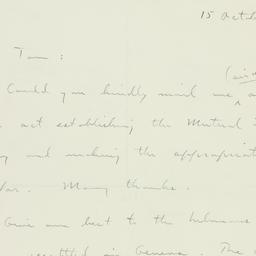 15 Octob
Tom:
(air
Could you kindly send me a
act establishing the Mutual
and making the appropriat
Many thanks.
Give our best to the
settled in Geneva. The